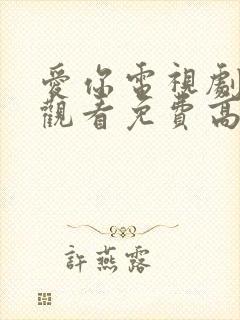 愛你電視劇
觀看免費高
許燕露